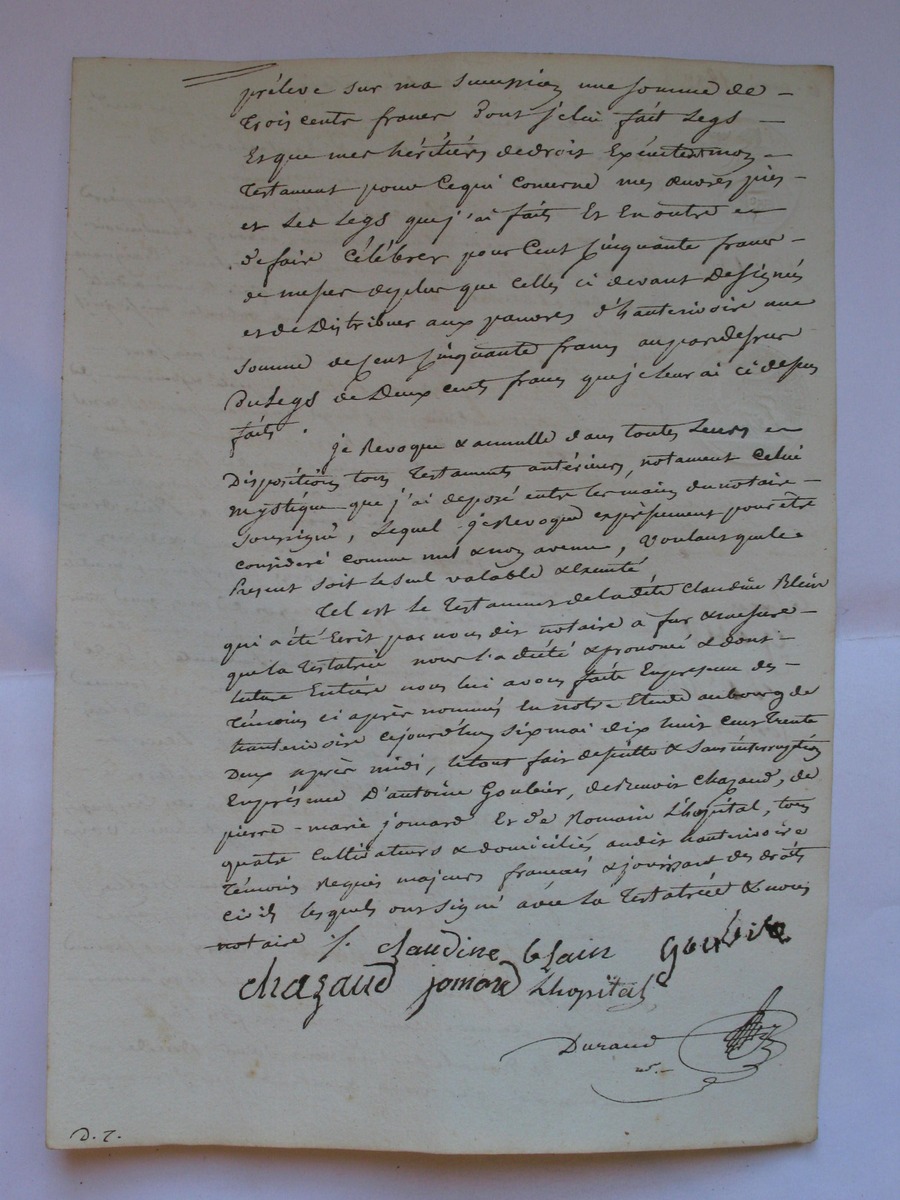 prélève sur ma succession une somme de –
Trois cents francs dont je lui fait Legs –
Et que mes héritiers de droit Exécutent mon –
Testament pour Ce qui Concerne mes œuvres pies –
et Les Legs que j'ai faits Et En outre en
de faire Célébrer pour Cent Cinquante francs –
de messes de plus que Celles ci devant Désignés
et de Distribuer aux pauvres d'hauterivoire une
Somme de Cent Cinquante francs au par dessus
Du Legs de Deux cents francs que je leur ai ci dessus
faits.
je Revoque & annulle dans toutes Leurs
Dispositions tous Testaments antérieurs, notament Celui
mystique que j'ai déposé entre les mains du notaire –
Soussigné, Lequel je Revoque expressement pour être
consideré comme nul & non avenu, Voulant que le
Présent soit Le Seul valable & Exécuté
Tel est Le Testament de la dite Claudine Blein
qui a été Ecrit par nous dit notaire a fur & mesure –
que la Testatrice nous l'a dicté & prononcé & dont –
lecture Entière nous lui avons faite En présence des –
Témoins ci après nommés En notre Etude au bourg de
hauterivoire ce jourd'huy six mai dix huit cent trente
Deux après midi, le tout fait de suitte & sans interruption
En présence D'antoine Goubier, de Benoit Chazaud, de
pierre-marie jomard Et de Romain Lhopital, tous
quatre Cultivateurs & domiciliés audit hauterivoire
Témoins Requis majeurs français & jouissant des droits
civils lesquels ont signé avec La Testatrice & nous
notaire ./. claudine blain
chazaud jomard Lhopital
Durand
D. T.